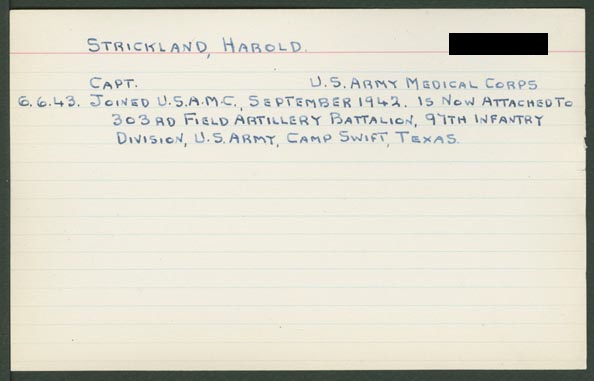 STRICKLAND, HAROLD.
CAPT. U.S. ARMY MEDICAL CORPS
6.6.43. JOINED U.S.A.M.C., SEPTEMBER 1942. IS NOW ATTACHED TO
303RD FIELD ARTILLERY BATTALION, 97TH INFANTRY
DIVISION, U.S. ARMY, CAMP SWIFT, TEXAS.